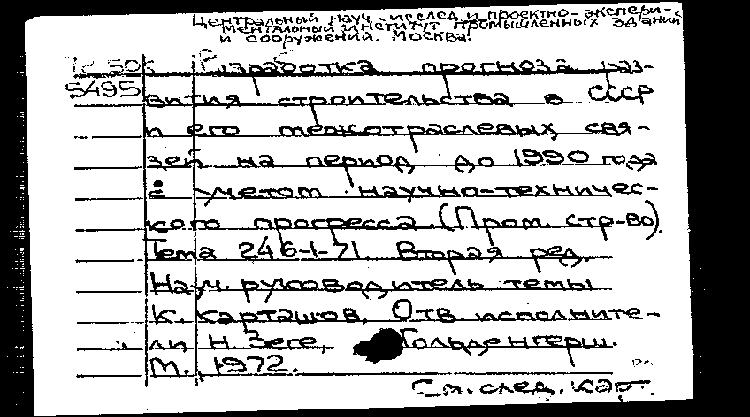 Центральный науч.-исслед. и проектно-экспери-
ментальный институт промышленных зданий
и сооружений. Москва.
Разработка прогноза раз-
5495 вития строительства в СССР
и его межотраслевых свя-
зей на период до 1990 года
с учетом научно-техничес-
кого прогресса (Пром. стр-во).
Тема 246-1-71. Вторая ред.
Науч. руководитель темы
К. Карташов. Отв исполните-
ли Н. Зеге, Гольденгерш.
М., 1972.
См. след. карт.